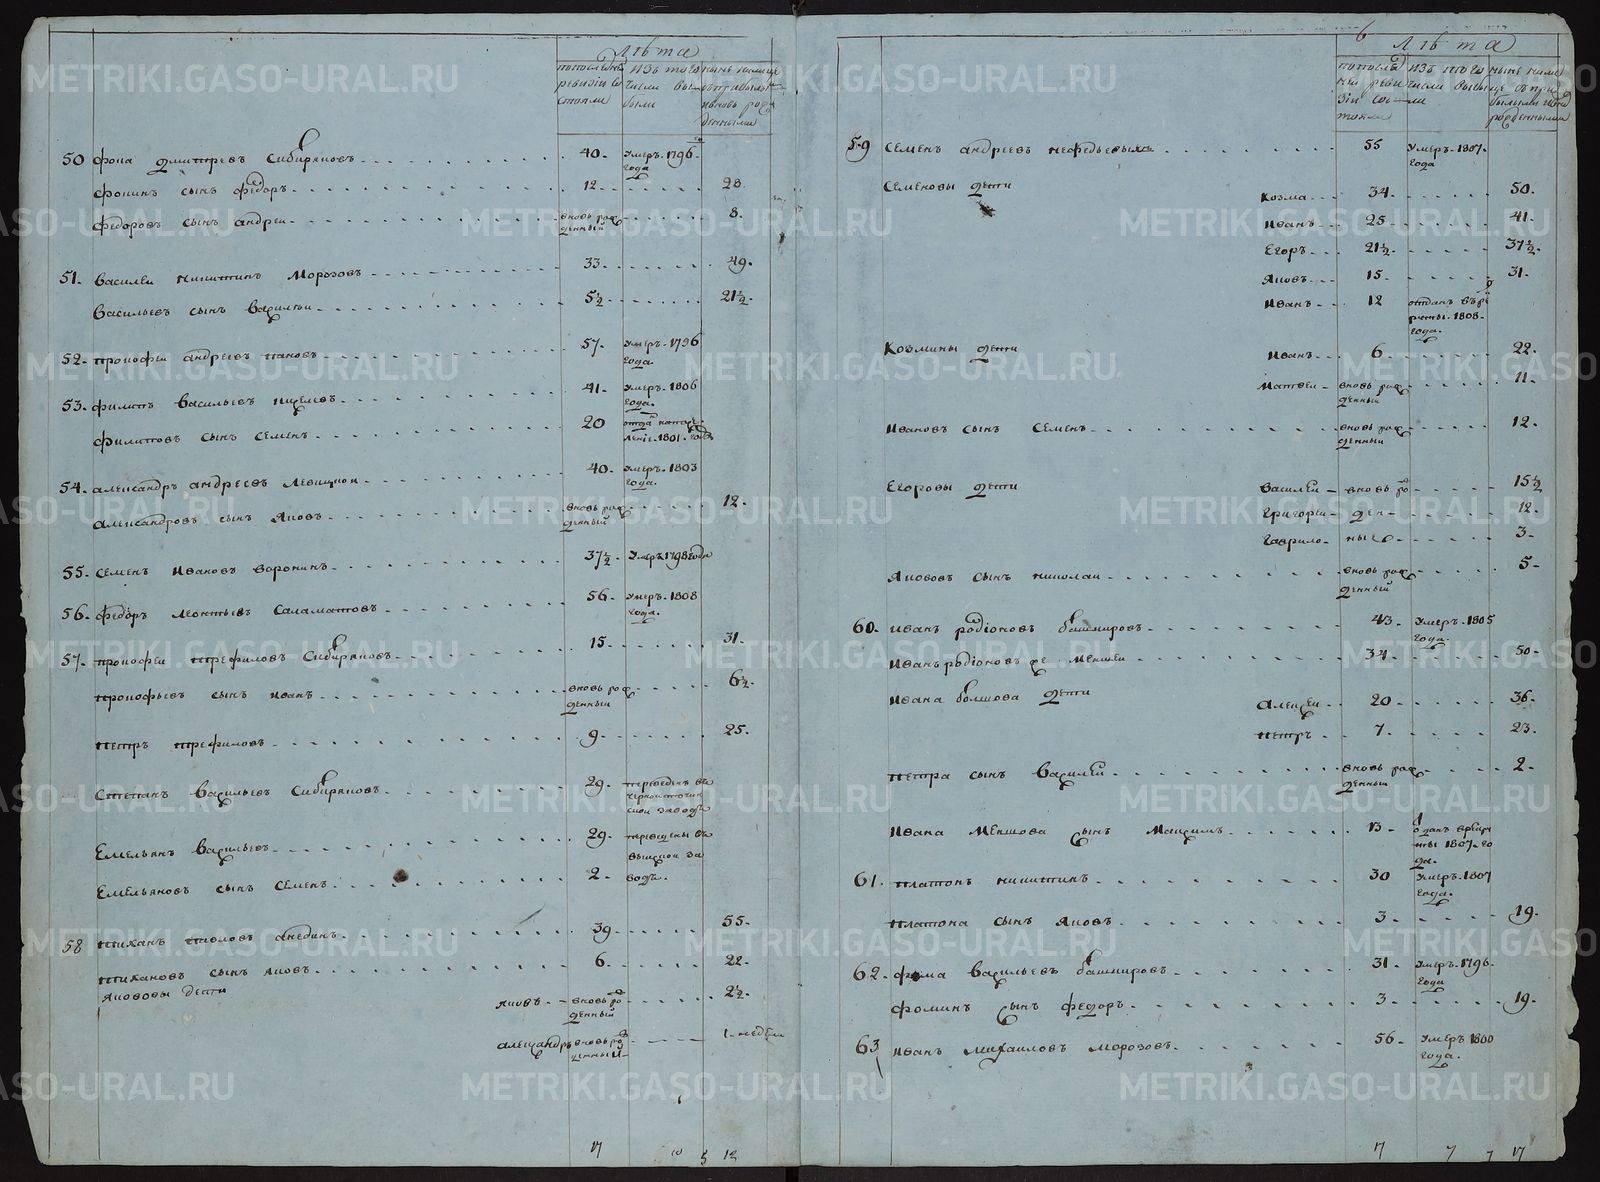 лѣта
по последней ревизіи состояли
изъ того числа выбыли
50 фома дмитревъ Сибиряковъ 40. умеръ. 1796. года
фоминъ сынъ федоръ 12. 28.
федоровъ сынъ андреи вновь рожденный 8.
51. Василеи никитинъ Морозовъ 33. 49.
Васильевъ сынъ Василеи 5½ 21½.
52. прокофеи андреевъ пановъ 57. умеръ. 1796 года.
53. филипъ Васильевъ 41. умеръ. 1806 года.
филиповъ сынъ Семенъ 20 1801. года
54. александръ андреевъ 40. умеръ. 1803 года.
александровъ сынъ Яковъ вновь рожденный 12.
55. Семенъ Ивановъ воронинъ 37½. умеръ 1798 года
56. федоръ леонтьевъ Саламатовъ 56. умеръ. 1808 года.
57. прокофеи трефиловъ Сибиряковъ 15. 31.
прокофьевъ сынъ иванъ вновь рожденный 6½.
петръ трефиловъ 9. 25.
Степанъ Васильевъ Сибиряковъ 29. переведенъ въ заводъ
Емельянъ Васильевъ 29. переведены въ
Емельяновъ сынъ Семенъ 2. заводъ.
58 тиханъ павловъ 39. 55.
тихановъ сынъ яковъ 6. 22.
яковъ вновь рожденный 2½.
Якововы дети
александръ вновь рожденный 1. недели
17 10 5 12
6
лѣта
по последней ревизіи состояли
изъ того числа выбыли
59 Семенъ андреевъ 55 умеръ. 1807. года
Семеновы дети Козма 34. 50.
Иванъ 25 41.
Егоръ 21½ 37½.
Яковъ 15. 31.
Иванъ 12 отданъ въ рекруты. 1808. года.
Козмины дети Иванъ 6. 22.
Матвеи вновь рожденный 11.
Ивановъ сынъ Семенъ вновь рожденный 12.
Егоровы дети Василеи вновь ро 15½
григореи ден 12.
гаврило ные 3.
Якововъ сынъ николаи вновь рожденный 5.
60. Иванъ родіоновъ башкировъ 43. умеръ. 1805 года.
Иванъ родіоновъ же меншеи 34. 50.
Ивана болшова дети Алексеи 20 36.
петръ 7. 23.
петра сынъ Василеи вновь рожденный 2.
Ивана Меншова сынъ Максимъ 13. отданъ в рекруты 1807. года.
61. платонъ никитинъ 30 умеръ. 1807 года.
платона сынъ яковъ 3. 19.
62. фома Васильевъ башкировъ 31. умеръ. 1796. года
фоминъ сынъ федоръ 3. 19.
63 Иванъ михаиловъ морозовъ 56. умеръ 1800 года.
17 7 7 17
METRIKI.GASO-URAL.RU